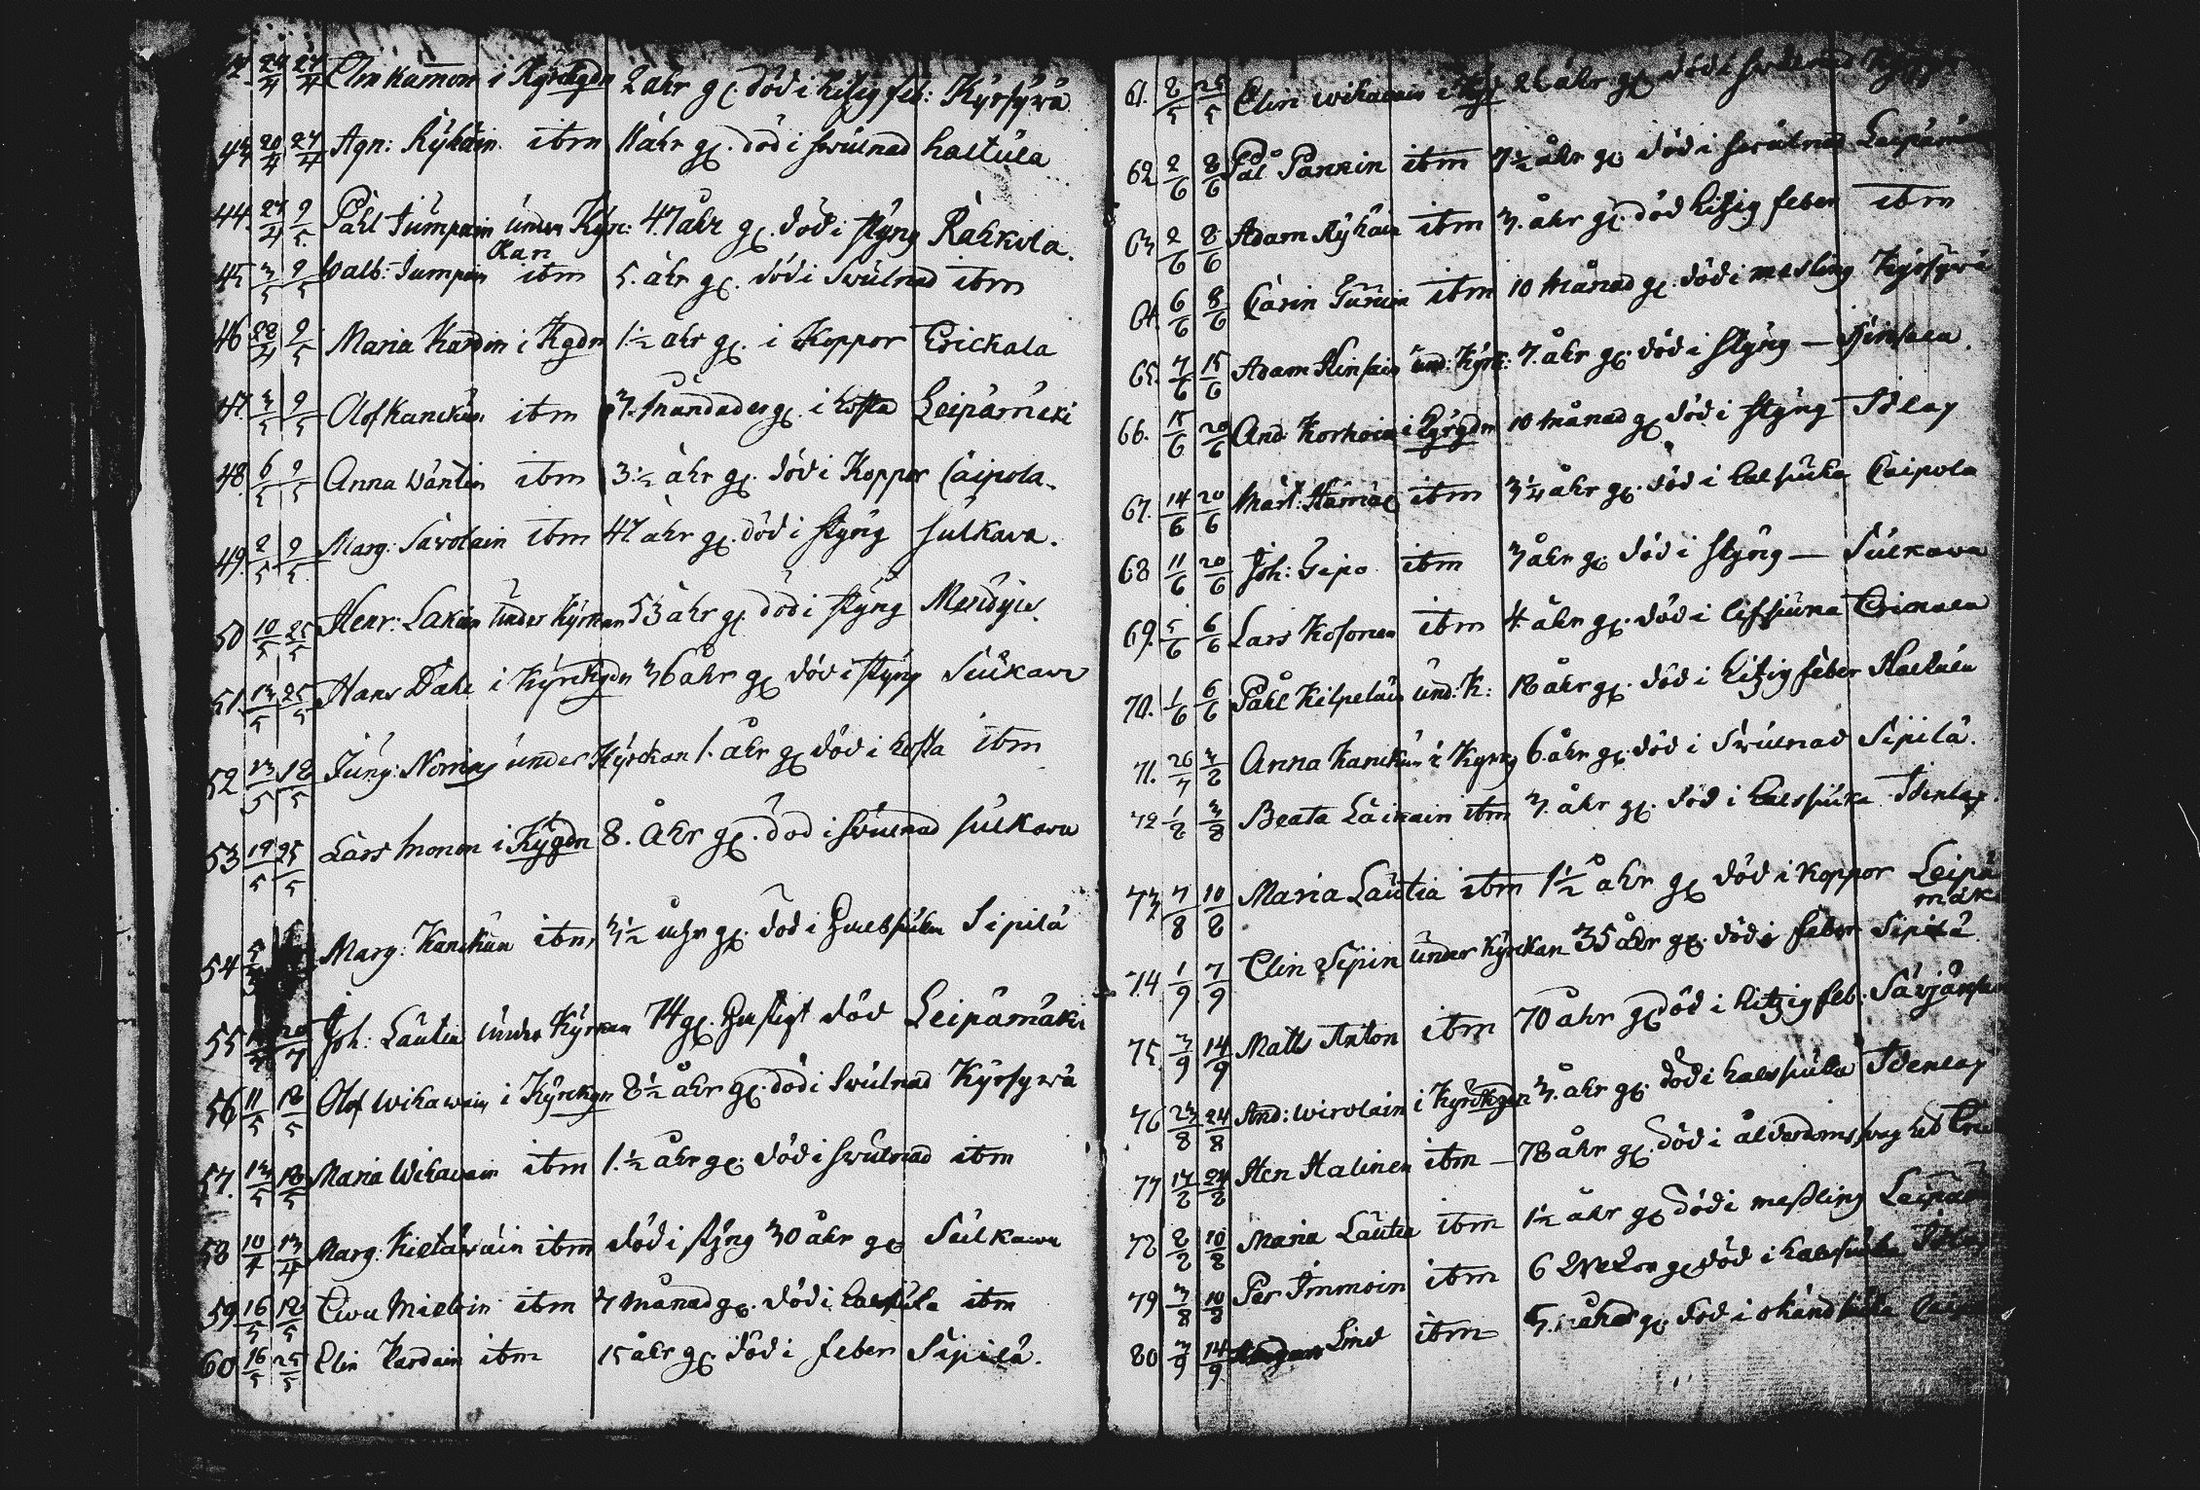 42. 20/4 27/4 Elin Kämmön i Kyrckgdn 2 åhr gl. död i hitzig feb: Kyrsywä
43 20/4 27/4 Agn: Ryhäin itm 11 åhr gl. död i swulnad haltula
44. 27/4 9/5 Påhl Tumpain under Kyr: 47 åhr gl. död i styng Rahkola.
kan
45 3/5 9/5 Walb: Tumpain itm 5. åhr gl. död i swulnad itm
46 22/4 9/5 Maria Kardin i Kgdn 1 1/2 åhr gl. i Koppor Erickala
47. 3/5 9/5 Olof Kanckun itm 3. månader gl. i hosta Leipämäcki
48. 6/5 9/5 Anna Wäntin itm 3 1/2 åhr gl. död i Koppor Caipola.
49. 2/5 9/5 Marg: Sawolain itm 47 åhr gl. död i styng sulkava.
50 10/5 25/5 Henr: Lakain under Kyrkan 53 åhr gl. död i styng
51. 13/5 25/5 Hans Dahl i Kyrckgdn 36 åhr gl. död i styng Sulkawa
52 13/5 18/5 Jung: under Kyrckan 1. åhr gl. död i hosta itm
53 19/5 25/5 Lars Imonen i Kygdn 8. åhr gl. död i swulnad sulkawa
54 Marg: Kanckun itm 3 1/2 åhr gl. död i halssiuka Sipilä
55 Joh: Läutia under Kyrkan 74 gl. hastigt död Leipämäki
56 11/5 18/5 Olof Wihawain i Kyrckgn 8 1/2 åhr gl. död i swulnad Kyrsywä
57. 13/5 18/5 Maria Wihavain itm 1. 1/2 åhr gl. död i swulnad itm
58 10/4 13/4 Marg: Kietäwäin itm död i styng 30 åhr gl. Sulkawa
59 16/5 18/5 Ewa itm 7 månad gl. död i itm
60 16/5 25/5 Elin Kardain itm 15 åhr gl. död i feber Sipilä.
61. 8/5 25/5 Elin wihavain i 26 åhr gl. död i swulnad
62 2/6 8/6 Pål Pannin itm 7 1/2 åhr gl. död i swulnad Leipämä
63 2/6 8/6 Adam Ryhäin itm 3. åhr gl. död hitzig feber itm
64. 6/6 8/6 Carin itm 10 månad gl. död i mesling Kyrsywä
65. 7/6 15/6 Adam Hinsain und: Kyrk: 7. åhr gl. död i styng —
66. 15/6 20/6 And: Korhoin i Kyrgdn 10 månad gl. död i styng
67. 14/6 20/6 Märt: itm 3 1/4 åhr gl. död i halssiuka Caipola
68 11/6 20/6 Joh: itm 3 åhr gl. död i styng — Sulkawa
69. 5/6 6/6 Lars Kosonen itm 4. åhr gl. död i lifsiuka
70. 1/6 6/6 Påhl Kilpeläin und: K: 18 åhr gl. död i hitzig feber Haltula
71. 26/7 3/8 Anna Kanckun i Kyrkg 6. åhr gl. död i swulnad Sipilä.
72 1/8 3/8 Beata Läikain itm 3. åhr gl. död i halssiuka
73 7/8 10/8 Maria Läutia itm 1 1/2 åhr gl. död i koppor Leipä
mäk
74 1/9 7/9 Elin Sipin under kyrckan 35 åhr gl. död i feber Sipilä
75 3/9 14/9 Matts Anton itm 70 åhr gl. död i hitzig feb:
76 23/8 24/8 And: wirolain i Kyrckgdn 3. åhr gl. död i halssiuka
77 17/8 24/8 Hen Halinen itm — 78 åhr gl. död i ålderdoms
78 8/8 10/8 Maria Läutia itm 1 1/2 åhr gl. död i messling Leipäm
79 3/8 10/8 Per Immoin itm 6 gl. död i halssiuka
80 7/9 14/9 Lind itm gl. död i